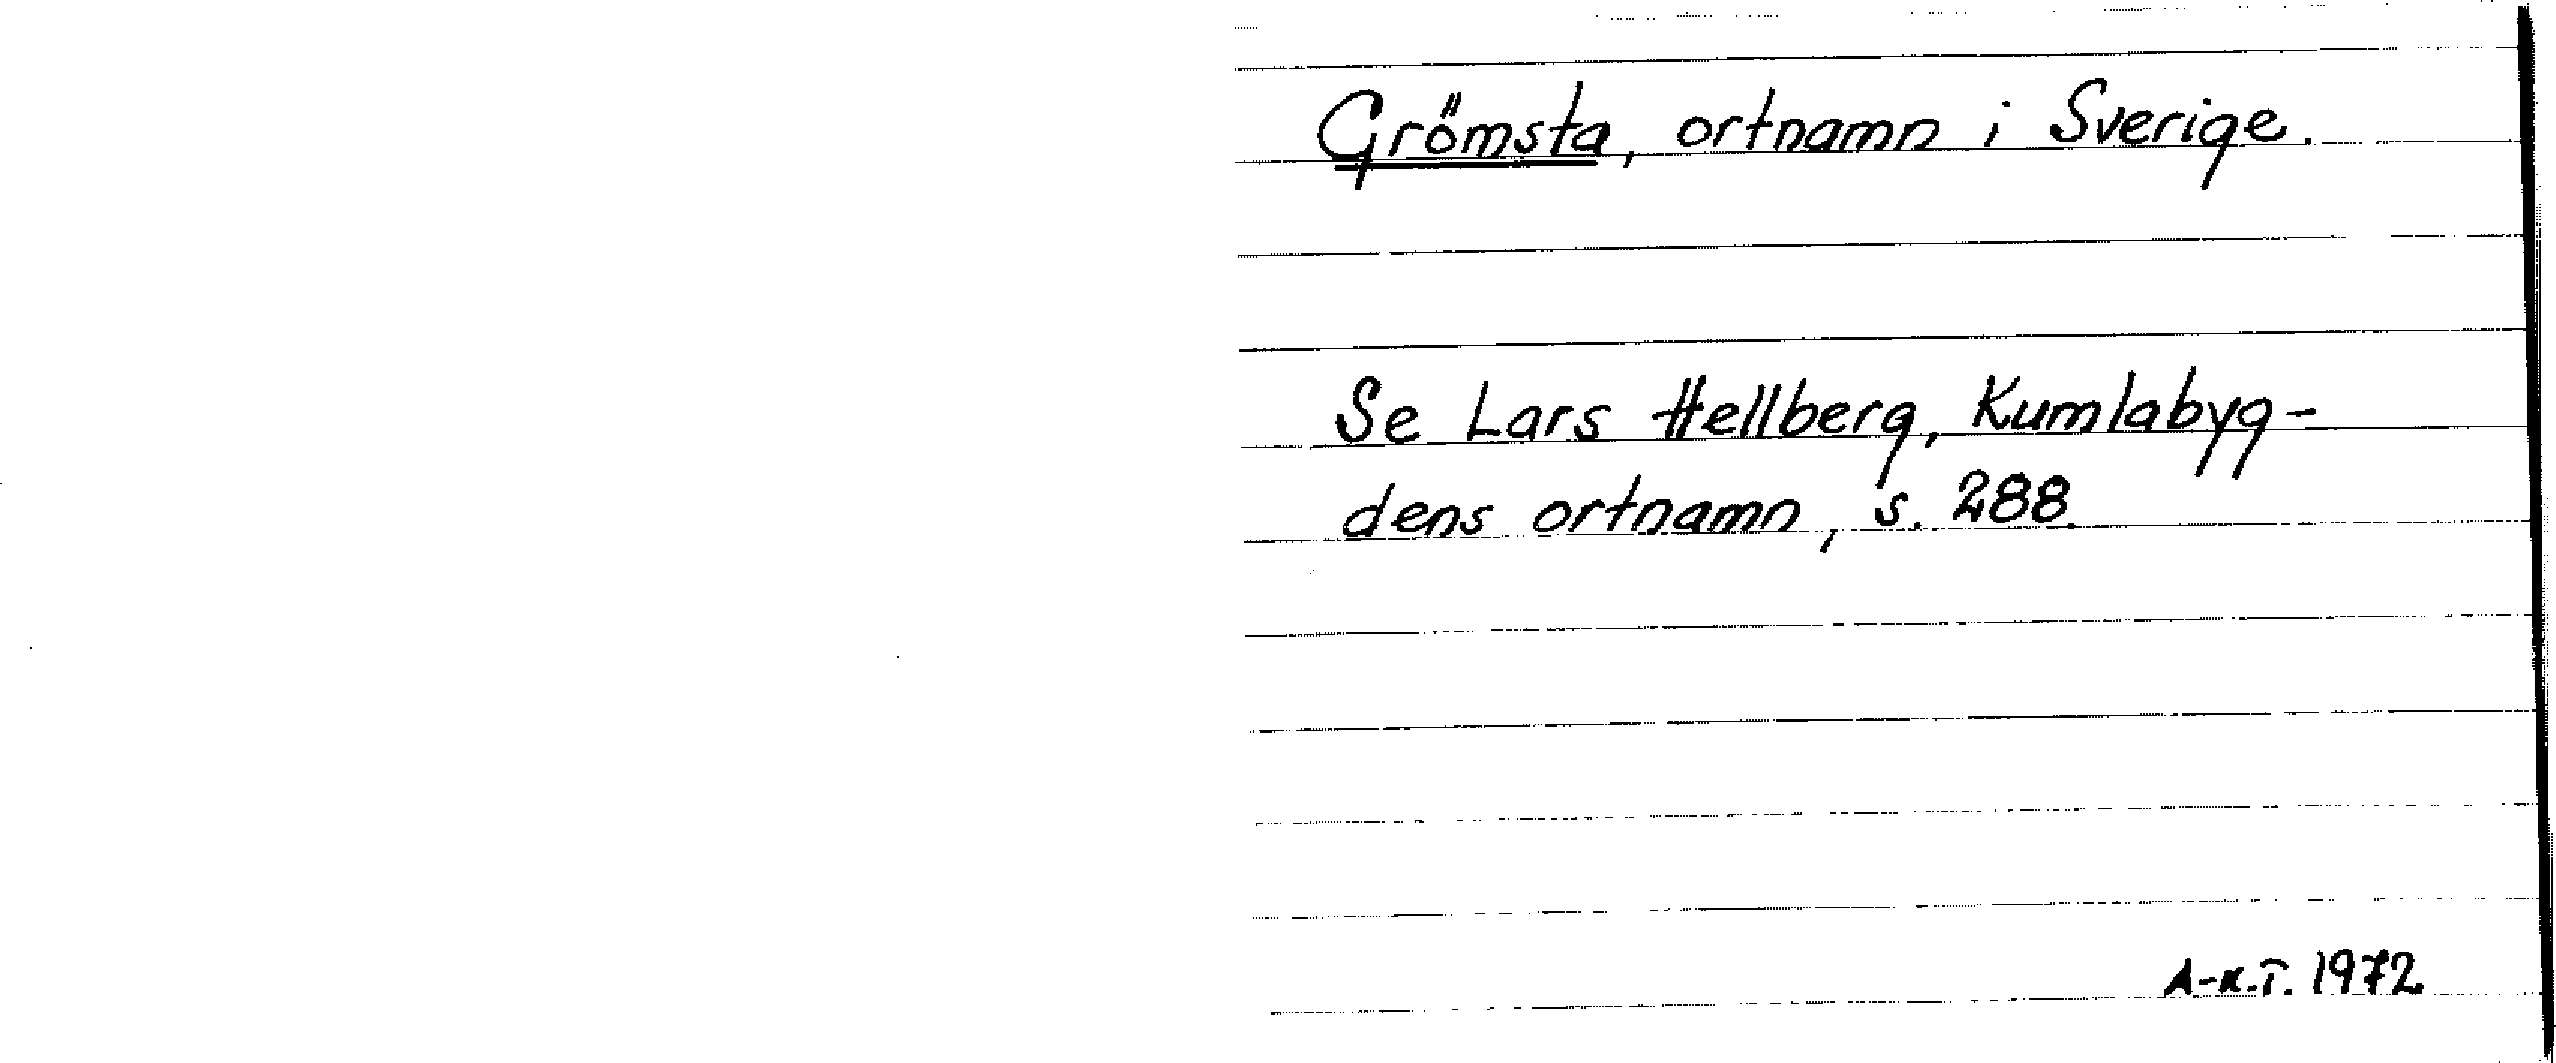 Grömsta, ortnamn i Sverige.
Se Lars Hellberg, Kumlabyg-
dens ortnamn, s. 288.
A-K.T. 1972